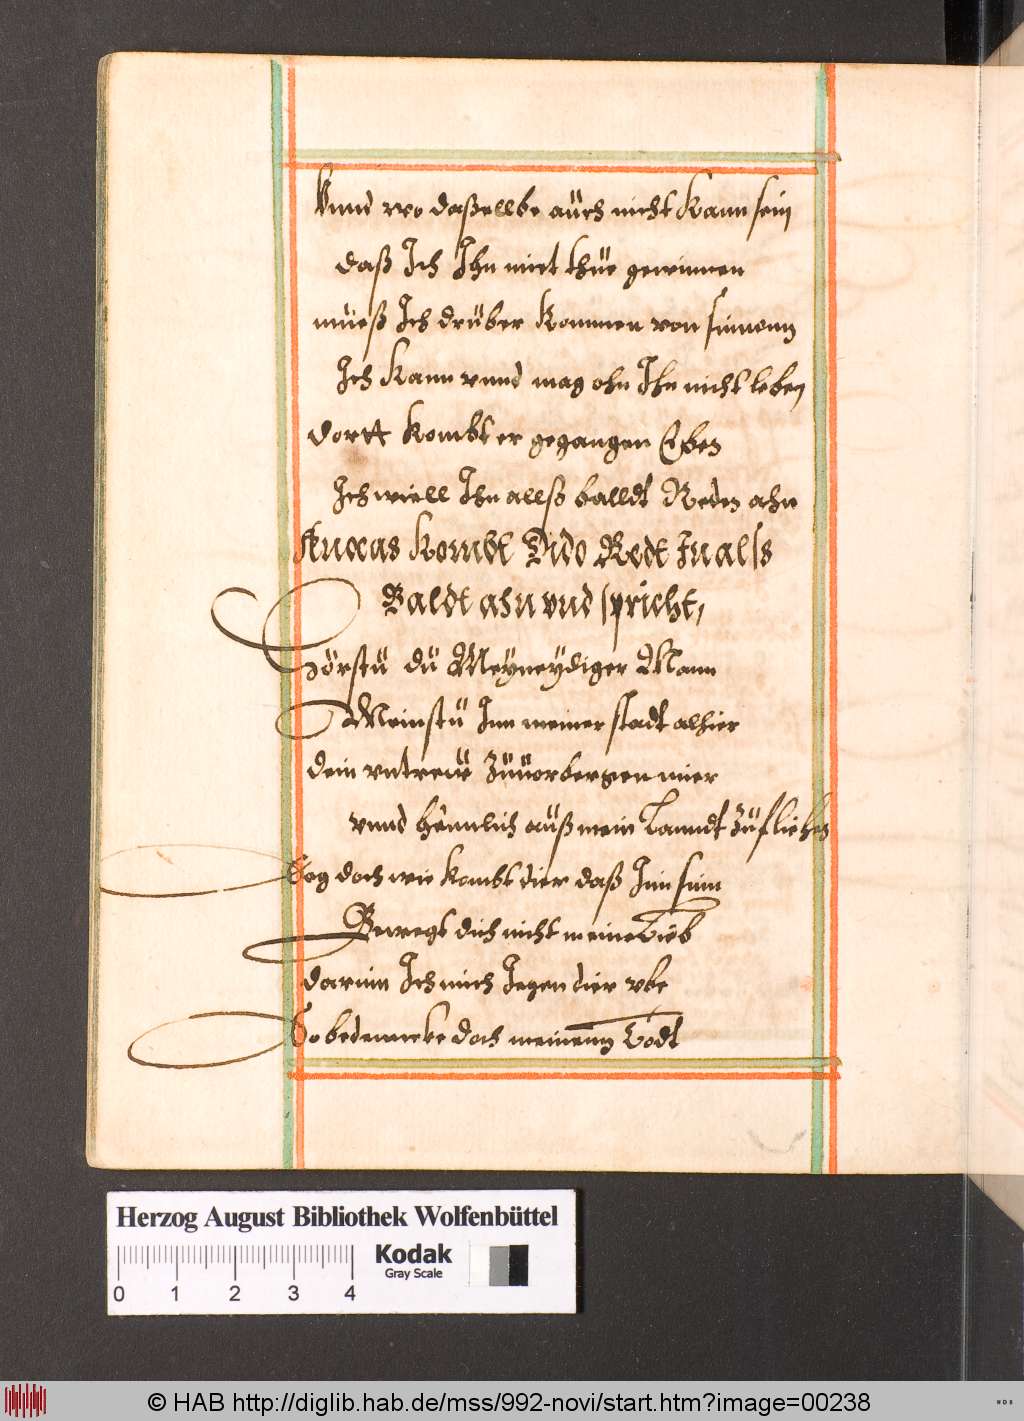 Vnnd wo daßellbe auch nicht kann sein
daß Ich Ihn miet thüe gewinnen
müeß Ich drüber kommen von sinnenn
Ich kann vnnd mag ohn Ihn nicht leben
dortt kombt er gegangen Eben
Ich wiell Ihn allß balldt Reden ahn
Aneas kombt Dido Redt In alss
Baldt ahn vnd spricht,
Hörstü dü Meyneydiger Mann
Meinstü Inn meiner stadt alhier
dein vntreüe züuorbergen mier
vnnd heimlich auß mein Lanndt züfliehen
Sag doch wie kombt dier daß Inn sinn
Bewegt dich nicht meine Lieb
darinn Ich mich Iegen dier vbe
So bedenncke doch meinenn Todt
Herzog August Bibliothek Wolfenbüttel
Kodak
Gray Scale
0 1 2 3 4
© HAB http://diglib.hab.de/mss/992-novi/start.htm?image=00238